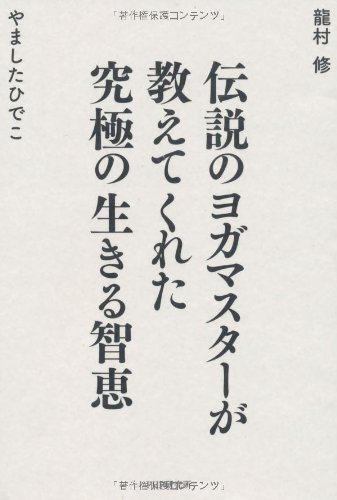 「著作権保護コンテンツ」
龍村 修
伝説のヨガマスターが
教えてくれた
究極の生きる智恵
やましたひでこ
「著作権保護コンテンツ」